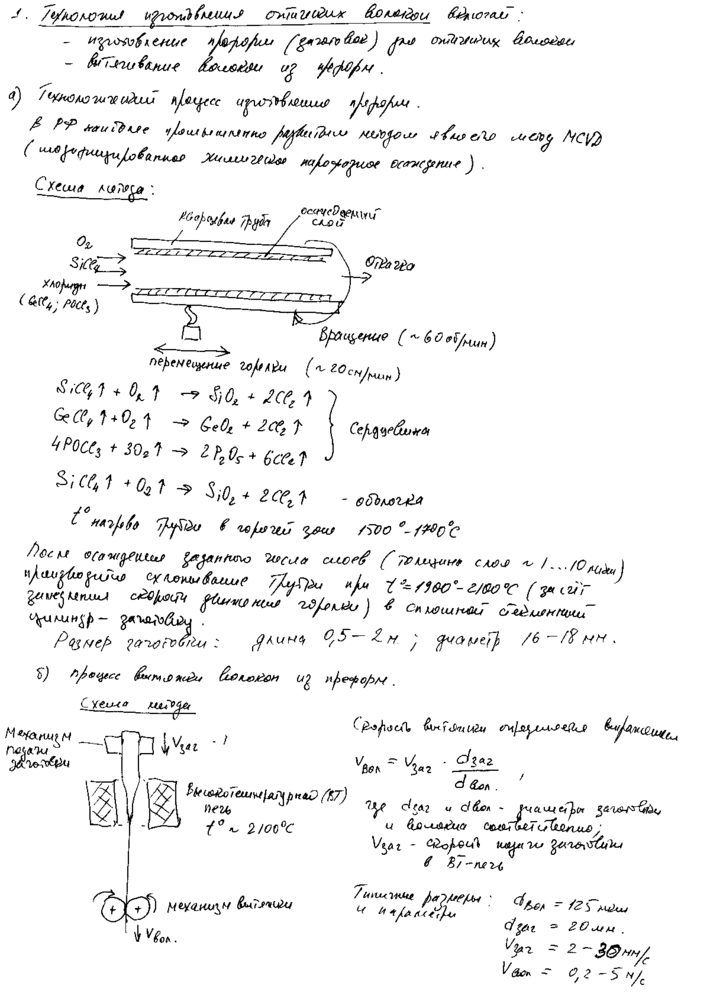 1. Технология изготовления оптических волокон включает:
- изготовление преформ (заготовок) для оптических волокон
- вытягивание волокон из преформ.
а) Технологический процесс изготовления преформ.
В РФ наиболее промышленно развитым методом является метод MCVD
(модифицированное химическое парофазное осаждение).
Схема метода:
кварцевая труба
осажденный слой
O₂
SiCl₄
хлориды
(GeCl₄; POCl₃)
Откачка
Вращение (~60 об/мин)
перемещение горелки (~20 см/мин)
SiCl₄↑ + O₂↑ → SiO₂ + 2Cl₂↑
GeCl₄↑ + O₂↑ → GeO₂ + 2Cl₂↑
4POCl₃ + 3O₂↑ → 2P₂O₅ + 6Cl₂↑
Сердцевина
SiCl₄↑ + O₂↑ → SiO₂ + 2Cl₂↑ - оболочка
t° нагрева трубки в горячей зоне 1500°-1700°С
После осаждения заданного числа слоев (толщина слоя ~ 1...10 мкм)
производится схлопывание трубки при t°=1900°-2100°С (за счёт
замедления скорости движения горелки) в сплошной стеклянный
цилиндр - заготовку.
Размер заготовки: длина 0,5-2 м; диаметр 16-18 мм.
б) процесс вытяжки волокон из преформ.
Схема метода
Механизм
подачи
заготовки
Vзаг
Высокотемпературная (ВТ)
печь
t° ~ 2100°С
механизм вытяжки
Vвол.
Скорость вытяжки определяется выражением
Vвол = Vзаг · dзаг / dвол. ,
где dзаг и dвол - диаметры заготовки
и волокна соответственно;
Vзаг - скорость подачи заготовки
в ВТ-печь
Типичные размеры:
и параметры
dвол = 125 мкм
dзаг = 20 мм.
Vзаг = 2-30 мм/с
Vвол = 0,2-5 м/с